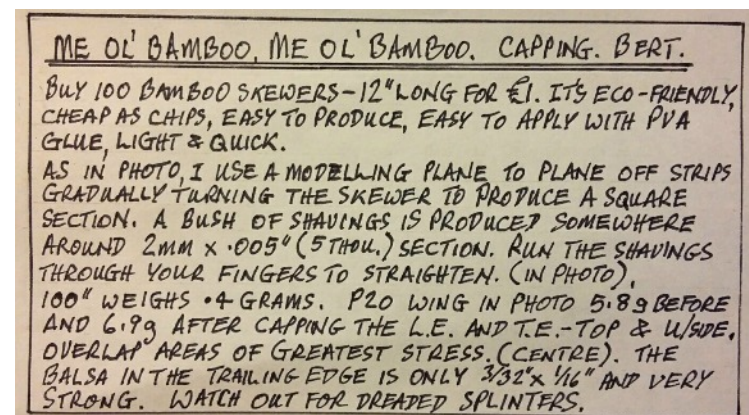 ME OL' BAMBOO, ME OL' BAMBOO. CAPPING. BERT.
BUY 100 BAMBOO SKEWERS – 12" LONG FOR £1. IT'S ECO-FRIENDLY,
CHEAP AS CHIPS, EASY TO PRODUCE, EASY TO APPLY WITH PVA
GLUE, LIGHT & QUICK.
AS IN PHOTO, I USE A MODELLING PLANE TO PLANE OFF STRIPS
GRADUALLY TURNING THE SKEWER TO PRODUCE A SQUARE
SECTION. A BUSH OF SHAVINGS IS PRODUCED SOMEWHERE
AROUND 2MM X .005" (5 THOU.) SECTION. RUN THE SHAVINGS
THROUGH YOUR FINGERS TO STRAIGHTEN. (IN PHOTO).
100" WEIGHS .4 GRAMS. P20 WING IN PHOTO 5.8g BEFORE
AND 6.9g AFTER CAPPING THE L.E. AND T.E.-TOP & U/SIDE.
OVERLAP AREAS OF GREATEST STRESS. (CENTRE). THE
BALSA IN THE TRAILING EDGE IS ONLY 3/32" X 1/16" AND VERY
STRONG. WATCH OUT FOR DREADED SPLINTERS.